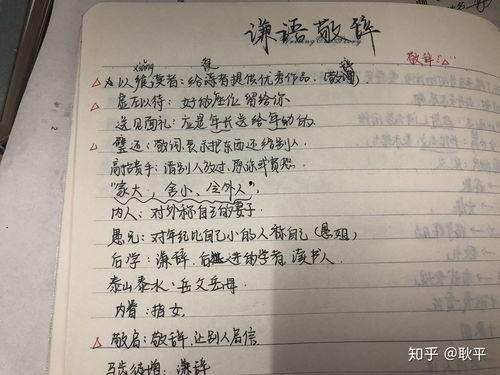 谦语敬辞
xiǎng
敬辞:"△"
△ 以飨读者:给读者提供优秀作品.(敬词)
△ 虚左以待:好的座位留给你
送见面礼:应是年长送给年幼的
△ 璧还:敬词表示把东西还给别人.
高抬贵手:请别人放过,原谅或宽恕.
"家大,舍小,令外人".
内人:对外称自己的妻子.
愚兄:对年纪比自己小的人称自己(愚姐)
后学:谦辞,后进的学者,读书人.
泰山泰水:岳父岳母.
内眷:指女.
△ 敬启:敬辞,让别人启信
马齿徒增:谦辞
知乎 @耿平